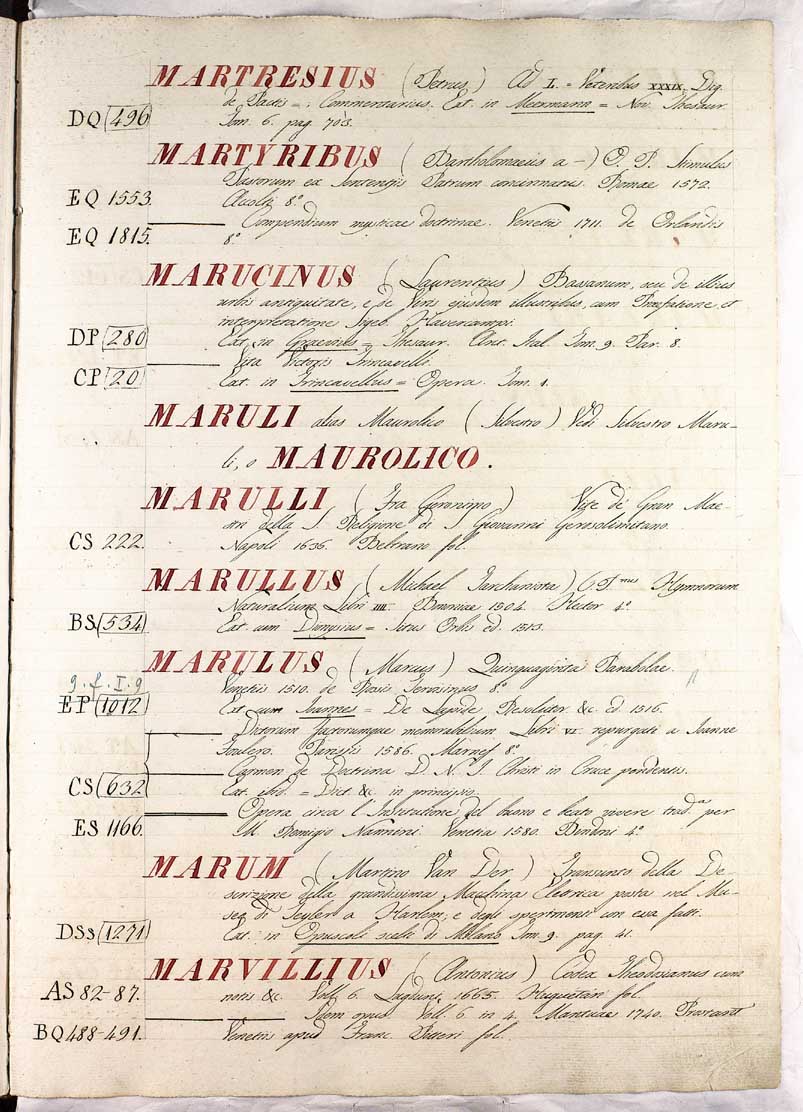 MARTRESIUS (Petrus) Ad L. = Veteribus XXXIX. Dig.
de Pactis = Commentarius. Ext. in Meermann = Nov. Thesaur.
DQ 496 Tom. 6. pag. 703.
MARTYRIBUS (Bartholomaeus a -) O. P. Stimulus
Pastorum ex Sententijs Patrum concinnatus. Romae 1572.
EQ 1553. Accolti 8.°
——— Compendium mysticae doctrinae. Venetiis 1711. de Orlandis
EQ 1815. 8.°
MARUCINUS (Laurentius) Bassanum, seu de illius
urbis antiquitate, e de Viris ejusdem illustribus, cum Praefatione, et
interpretatione Sigeb. Havercampi.
DP 280 Ext. in Graevius = Thesaur. Ant. Ital. Tom. 9. Par. 8.
——— Vita Victoris Trincavelli.
CP 20 Ext. in Trincavellus = Opera. Tom. 1.
MARULI alias Maurolico (Silvestro) Vedi Silvestro Maru-
li, o MAUROLICO.
MARULLI (Fra Geronimo) Vite de' Gran Mae-
stri della S. Religione di S. Giovanni Gerosolimitano.
CS 222. Napoli 1636. Beltrano fol.
MARULLUS (Michael Tarchaniota) Hymnorum
Naturalium Libri IIII. 1504. Hector 4.°
BS 534 Ext. cum Dionysius = Situs Orbis ed. 1513.
MARULUS (Marcus) Quinquaginta Parabolae.
9. f. I. 9 Venetiis 1510. de 8.°
EP 1012 Ext. cum Joannes = De Lapide Resolutor. &c. ed 1516.
——— Dictorum Factorumque memorabilium Libri VI. repurgati a Joanne
Foulero. Parisijs 1586. Marnef 8.°
——— Carmen de Doctrina D. N. J. Christi in Cruce pendentis.
CS 632 Ext. ibid. = Dict. &c. in principio.
——— Opera circa l'Institutione del buono e beato vivere trad.ª per
ES 1166. M. Remigio Nannini. Venetia 1580. Bindoni 4.°
MARUM (Martino Van Der) Transunto della De-
scrizione della grandissima Macchina Elettrica posta nel Mu-
seo di Teyler a Harlem, e degli sperimenti con essa fatti.
DSs 1271 Ext. in Opuscoli scelti di Milano Tom. 9. pag. 41.
MARVILLIUS (Antonius) Codex Theodosianus cum
AS 82-87. notis &c. Voll. 6. Lugduni, 1665. Huguetan fol.
——— ——— Idem opus. Voll. 6 in 4. Mantuae 1740. Prostant
BQ 488-491. Venetiis apud Franc. Pitteri fol.